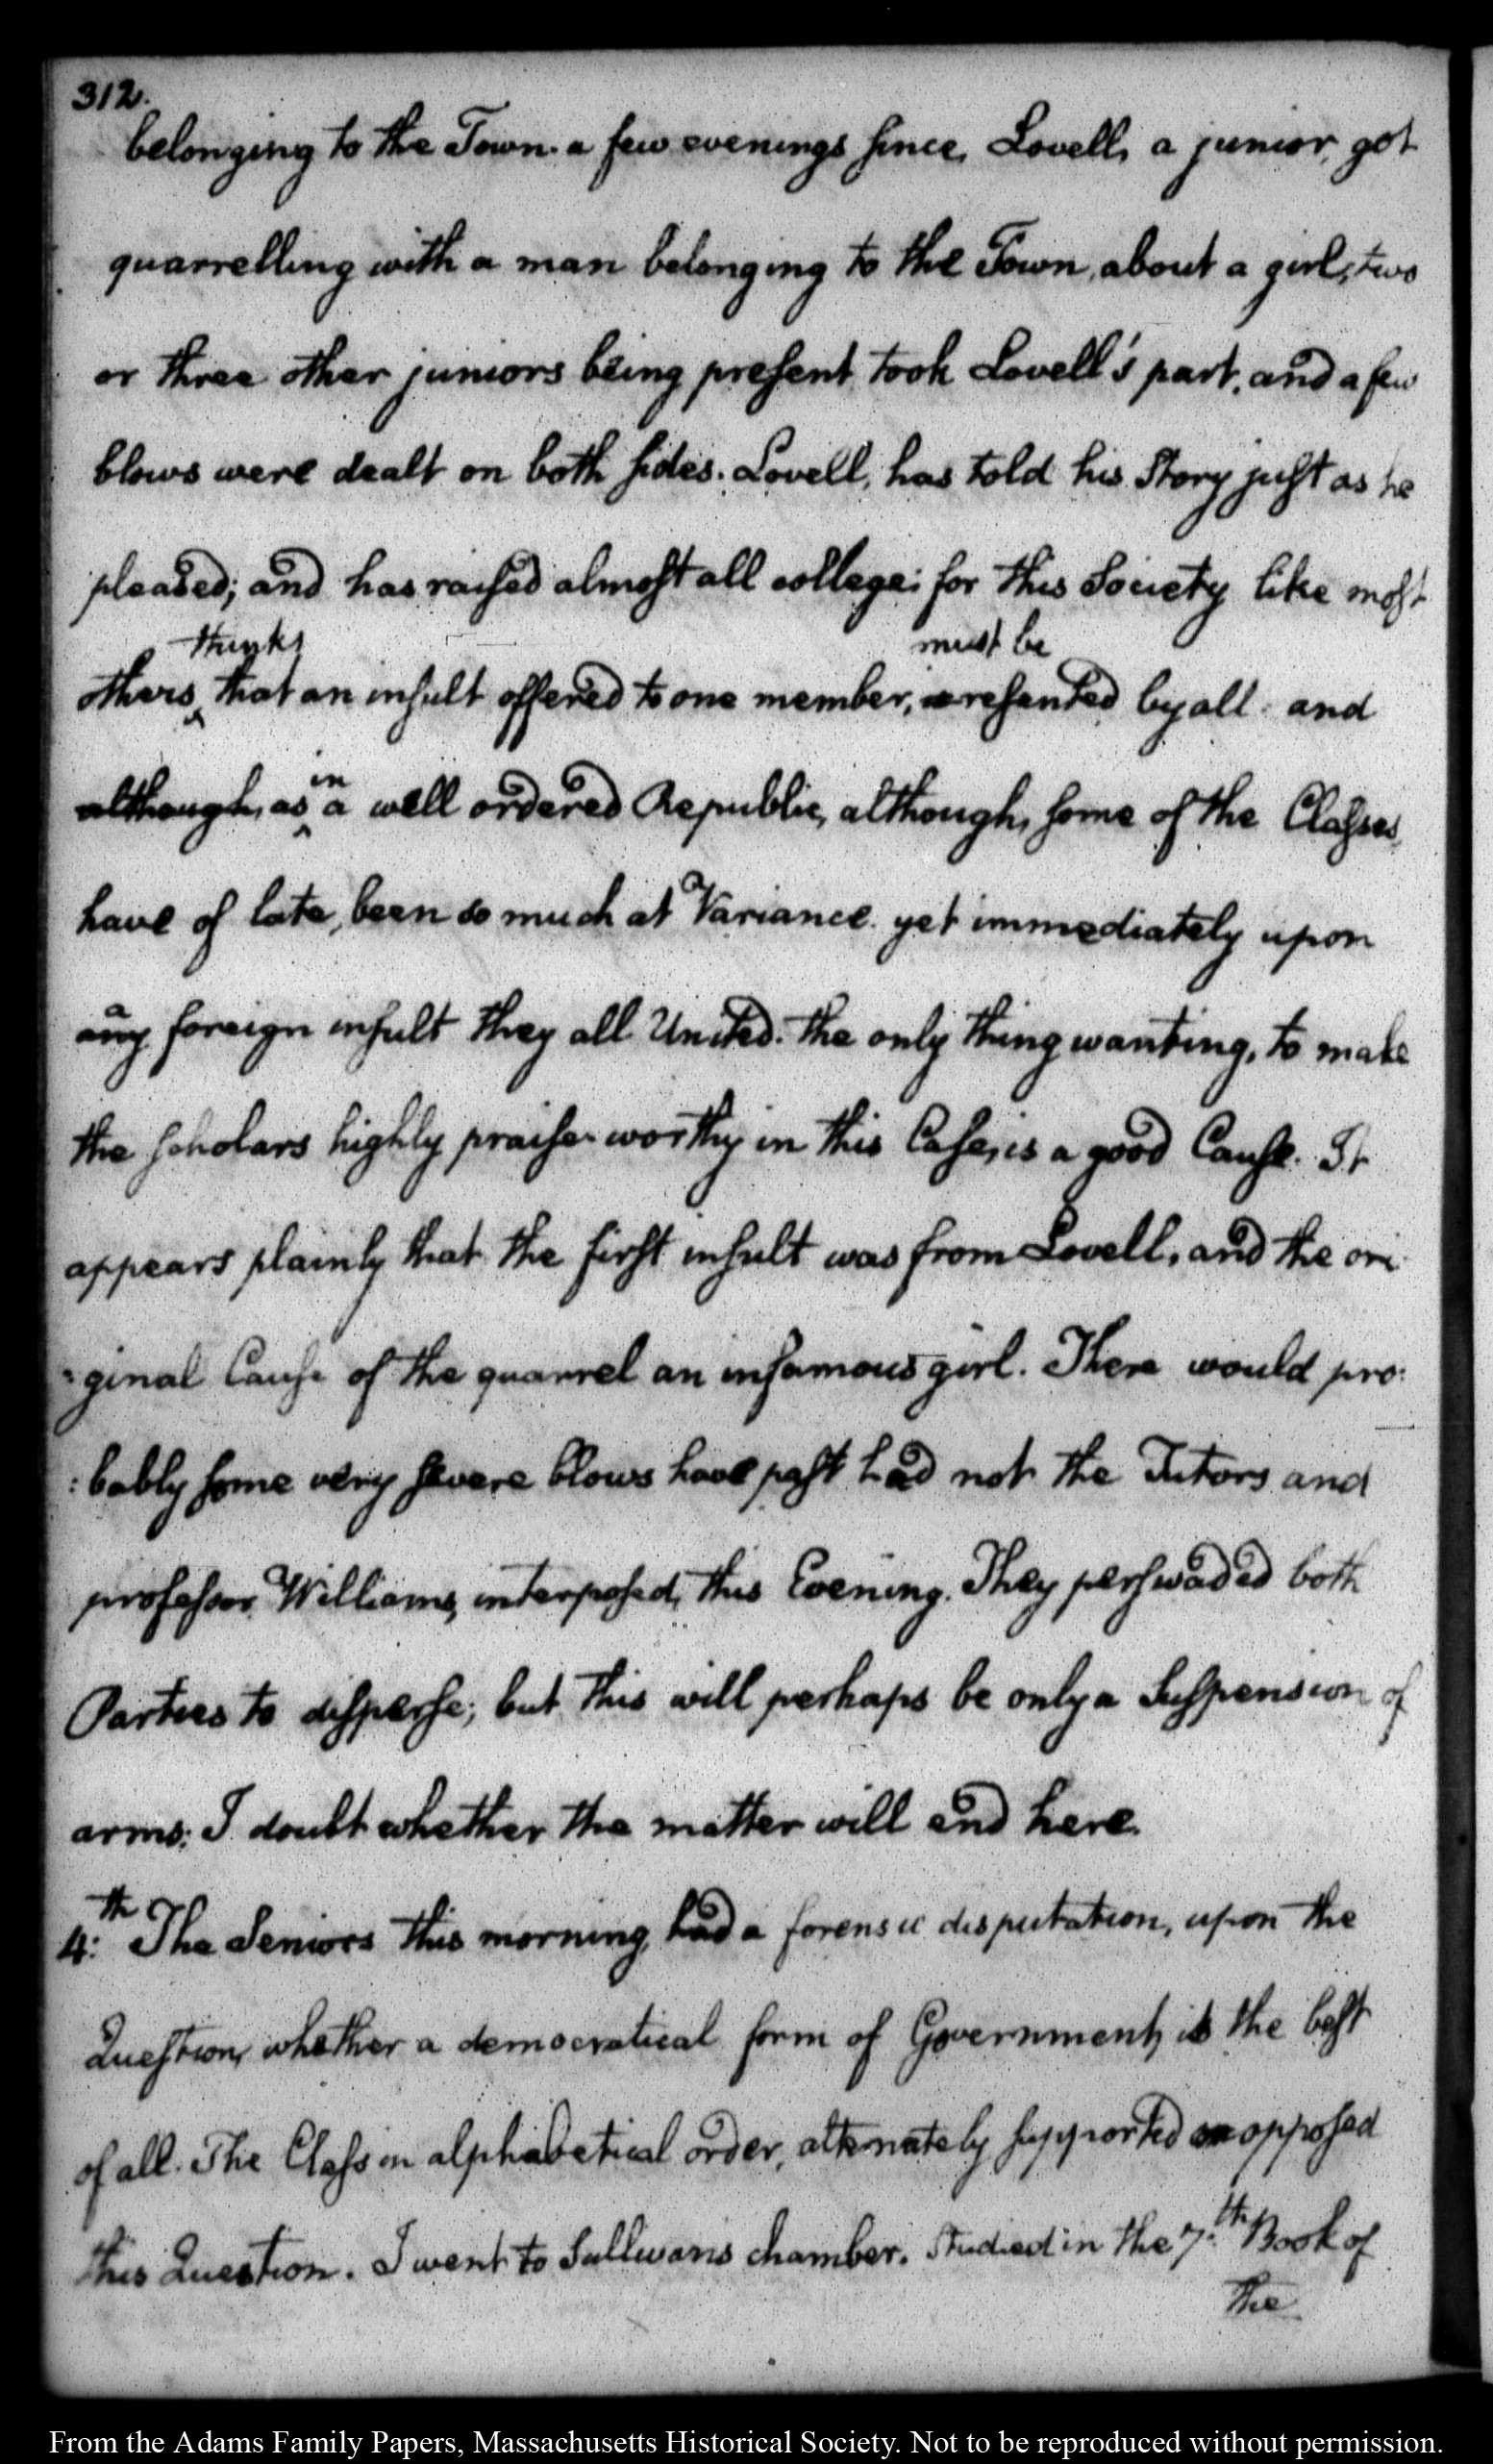 312.
belonging to the Town. a few evenings since, Lovell, a junior, got
quarrelling with a man belonging to the Town, about a girl, two
or three other juniors being present took Lovell's part, and a few
blows were dealt on both sides. Lovell, has told his Story just as he
pleased; and has raised almost all college: for this Society like most
thinks must be
others, that an insult offered to one member, resented by all and
in
although, as a well ordered Republic, although, some of the Classes,
have of late, been so much at Variance. yet immediately upon
any foreign insult they all United. the only thing wanting, to make
the scholars highly praise-worthy in this Case, is a good Cause. It
appears plainly that the first insult was from Lovell, and the ori
:ginal Cause of the quarrel an infamous girl. There would pro:
:bably some very severe blows have past had not the Tutors and
professor Williams, interposed, this Evening. They perswaded both
Parties to disperse; but this will perhaps be only a Suspension of
arms: I doubt whether the matter will end here.
4:th The Seniors this morning, had a forensic disputation, upon the
Question, whether a democratical form of Government, is the best
of all. The Class in alphabetical order, alternately supported or opposed
this Question. I went to Sullivans chamber. Studied in the 7.th Book of
the
From the Adams Family Papers, Massachusetts Historical Society. Not to be reproduced without permission.